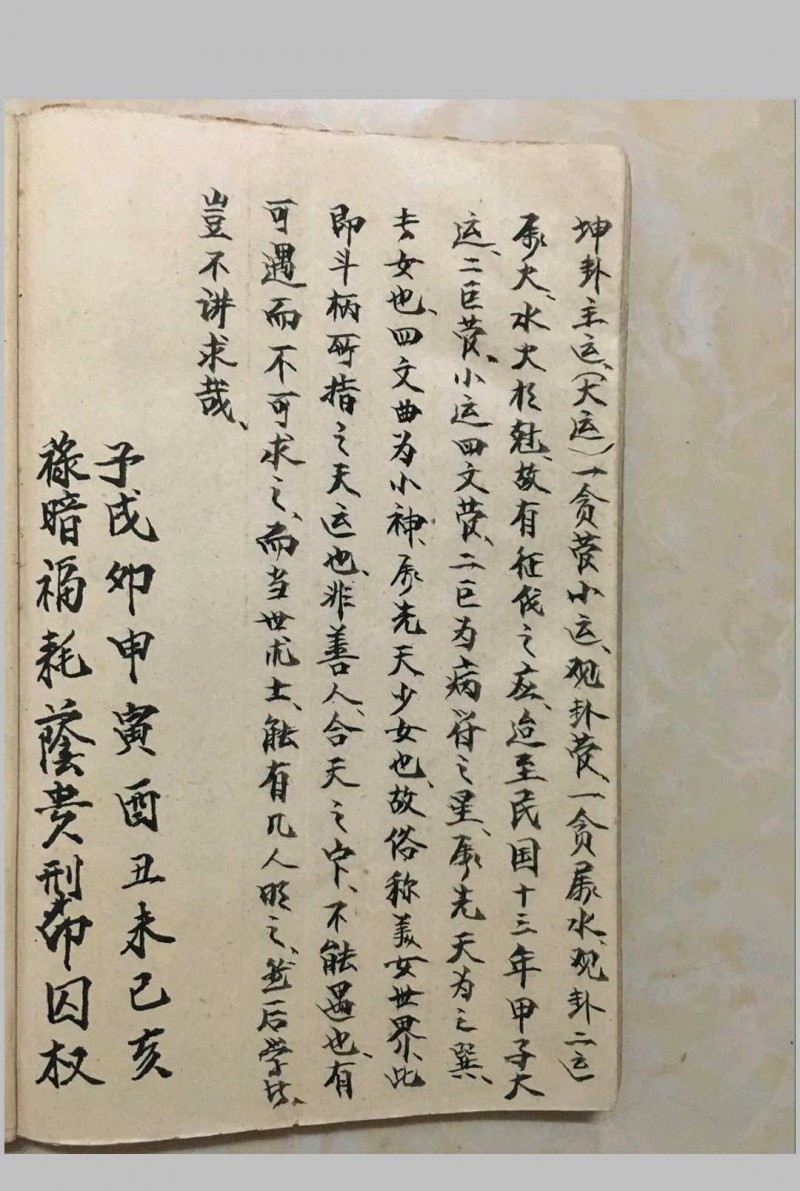 坤卦主运、(大运)一贪营小运、观卦营、一贪属水、观卦二运
属火、水火相尅、故有征伐之应、迨至民国十三年甲子大
运、二巨营、小运四文营、二巨为病符之星、属先天为之巽
长女也、四文曲为小神、属先天少女也、故俗称美女世界、此
即斗柄所指之天运也、非善人、合天之中、不能遇也、有
可遇而不可求之、而当世术士、能有几人明之、然后学者、
豈不讲求哉、
子戌卯申寅酉丑未巳亥
祿暗福耗蔭贵刑印囚权